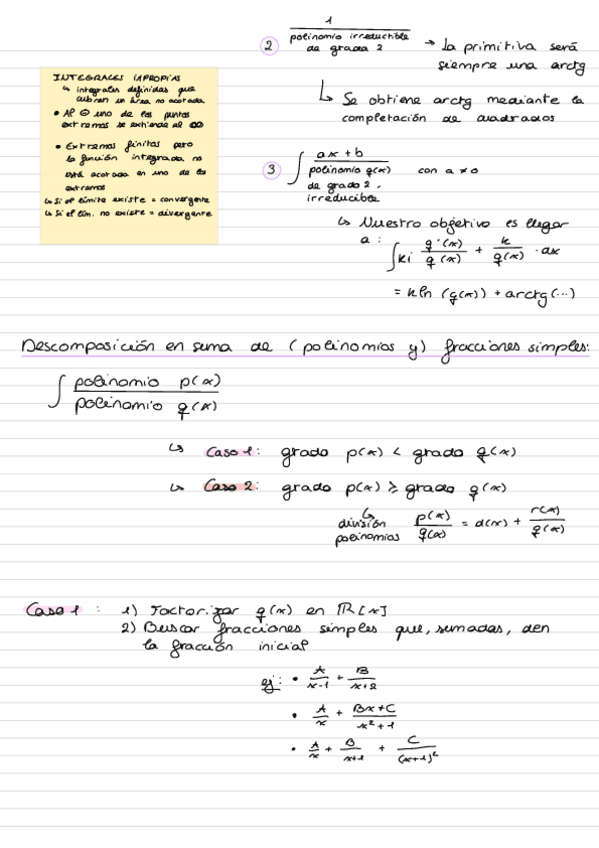 1
② polinomio irreductible de grado 2 → La primitiva será
siempre una arctg
↳ Se obtiene arctg mediante la
completación de cuadrados
INTEGRALES IMPROPIAS
↳ integrales definidas que
cubren un área no acotada
• Al ⊖ uno de los puntos
extremos se extiende al ∞
• Extremos finitos pero
la función integrada no
está acotada en uno de los
extremos
↳ Si el límite existe = convergente
↳ Si el lím. no existe = divergente
③ ∫ ax + b / polinomio q(x) de grado 2, irreducible con a ≠ 0
↳ Nuestro objetivo es llegar
a: ∫ ki q'(x)/q(x) + k/q(x) · dx
= k ln (q(x)) + arctg(...)
Descomposición en suma de (polinomios y) fracciones simples:
∫ polinomio p(x) / polinomio q(x)
↳ Caso 1: grado p(x) < grado q(x)
↳ Caso 2: grado p(x) ≥ grado q(x)
↳ división polinomios p(x)/q(x) = d(x) + r(x)/q(x)
Caso 1: 1) Factorizar q(x) en ℝ[x]
2) Buscar fracciones simples que, sumadas, den
la fracción inicial
ej: • A/x-1 + B/x+2
• A/x + Bx+C/x²+1
• A/x + B/x+1 + C/(x+1)²